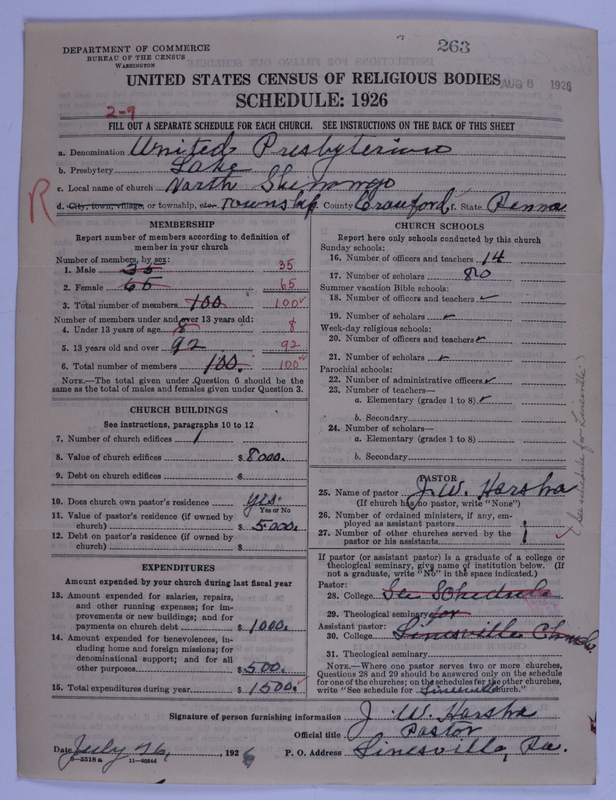 263
DEPARTMENT OF COMMERCE
BUREAU OF THE CENSUS
WASHINGTON
UNITED STATES CENSUS OF RELIGIOUS BODIES
AUG 6 1926
SCHEDULE: 1926
2-9
FILL OUT A SEPARATE SCHEDULE FOR EACH CHURCH. SEE INSTRUCTIONS ON THE BACK OF THIS SHEET
a. Denomination United Presbyterian
b. Presbytery Lake
c. Local name of church North Shenango
R
d. City, town, village, or township, etc. Township County Crawford f. State Penna
MEMBERSHIP
Report number of members according to definition of
member in your church
Number of members, by sex:
1. Male 35 35
2. Female 65 65
3. Total number of members 100 100
Number of members under and over 13 years old:
4. Under 13 years of age 8 8
5. 13 years old and over 92 92
6. Total number of members 100. 100
NOTE.—The total given under Question 6 should be the
same as the total of males and females given under Question 3.
CHURCH BUILDINGS
See instructions, paragraphs 10 to 12
7. Number of church edifices 1
8. Value of church edifices $ 8000.
9. Debt on church edifices $
10. Does church own pastor's residence yes.
Yes or No
11. Value of pastor's residence (if owned by
church) $ 5000.
12. Debt on pastor's residence (if owned by
church) $
EXPENDITURES
Amount expended by your church during last fiscal year
13. Amount expended for salaries, repairs,
and other running expenses; for im-
provements or new buildings; and for
payments on church debt $ 1000.
14. Amount expended for benevolences, in-
cluding home and foreign missions; for
denominational support; and for all
other purposes $ 500.
15. Total expenditures during year $ 1500.
CHURCH SCHOOLS
Report here only schools conducted by this church
Sunday schools:
16. Number of officers and teachers 14
17. Number of scholars 80
Summer vacation Bible schools:
18. Number of officers and teachers
19. Number of scholars
Week-day religious schools:
20. Number of officers and teachers
21. Number of scholars
Parochial schools:
22. Number of administrative officers
23. Number of teachers—
a. Elementary (grades 1 to 8)
b. Secondary
24. Number of scholars—
a. Elementary (grades 1 to 8)
b. Secondary
(See schedule for Linesville)
PASTOR
25. Name of pastor J. W. Harsha
(If church has no pastor, write "None")
26. Number of ordained ministers, if any, em-
ployed as assistant pastors
27. Number of other churches served by the
pastor or his assistants 1
If pastor (or assistant pastor) is a graduate of a college or
theological seminary, give name of institution below. (If
not a graduate, write "No" in the space indicated.)
Pastor:
28. College See Schedule
29. Theological seminary for
Assistant pastor:
30. College Linesville Church
31. Theological seminary
NOTE.—Where one pastor serves two or more churches,
Questions 28 and 29 should be answered only on the schedule
for one of the churches; on the schedules for the other churches,
write "See schedule for Linesville church."
Signature of person furnishing information J. W. Harsha
Official title Pastor
Date July 26, 1926 P. O. Address Linesville, Pa.